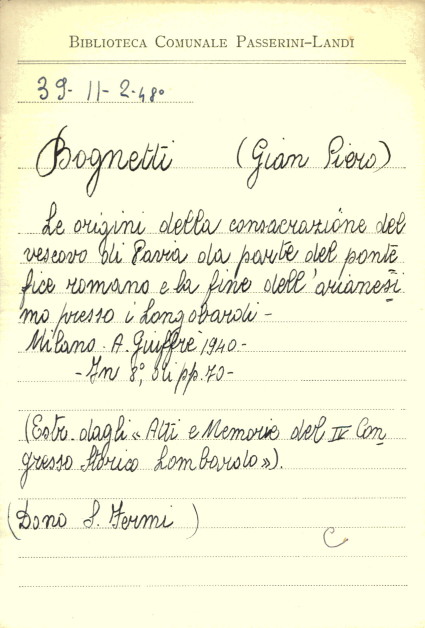 BIBLIOTECA COMUNALE PASSERINI-LANDI
39-11-2-48°
Bognetti (Gian Piero)
Le origini della consacrazione del
vescovo di Pavia da parte del ponte
fice romano e la fine dell'arianesi
mo presso i Longobardi-
Milano. A. Giuffrè 1940-
-In 8°, di pp. 70-
(Estr. dagli «Atti e Memorie del IV Con
gresso Storico Lombardo»).
(Dono S. Fermi )
C